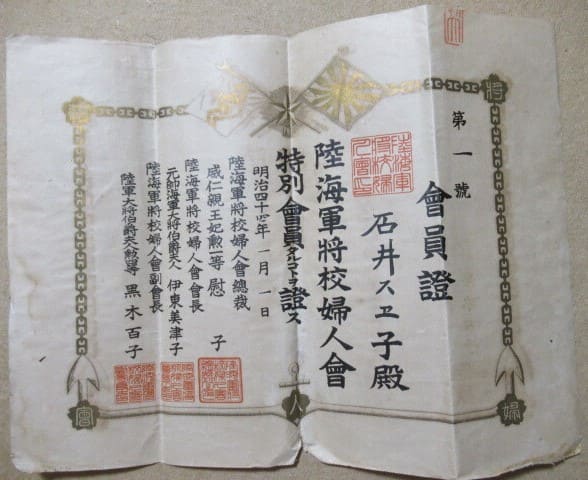 第一號
會員證
石井スヱ子殿
陸海軍將校婦人會
特別會員タルコトヲ證ス
明治四十四年一月一日
陸海軍將校婦人會總裁
威仁親王妃勲一等慰子
陸海軍將校婦人會會長
元帥海軍大將伯爵夫人伊東美津子
陸海軍將校婦人會副會長
陸軍大將伯爵夫人
黒木百子
將
校
婦
人
會